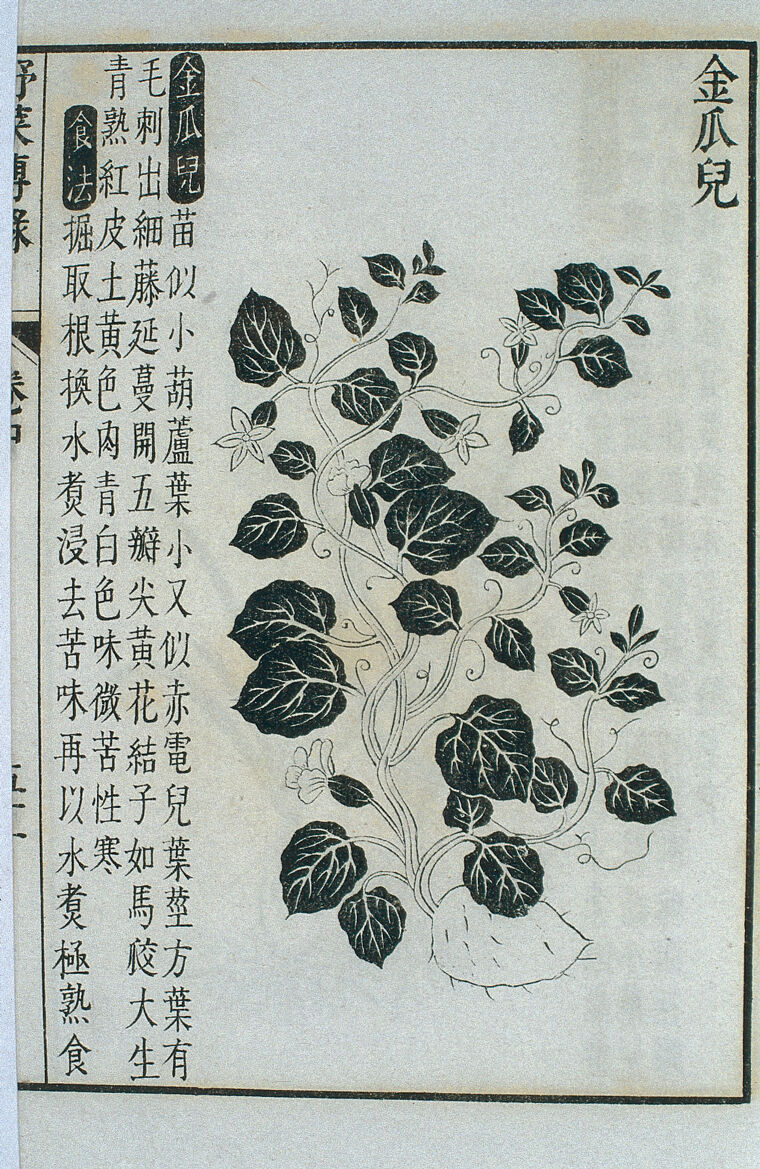 金瓜兒
金瓜兒苗似小葫蘆葉小又似赤雹兒葉莖方葉有
毛刺出細藤延蔓開五瓣尖黃花結子如馬㼎大生
青熟紅皮土黃色肉青白色味微苦性寒
食法掘取根換水煑浸去苦味再以水煑極熟食
野菜博錄